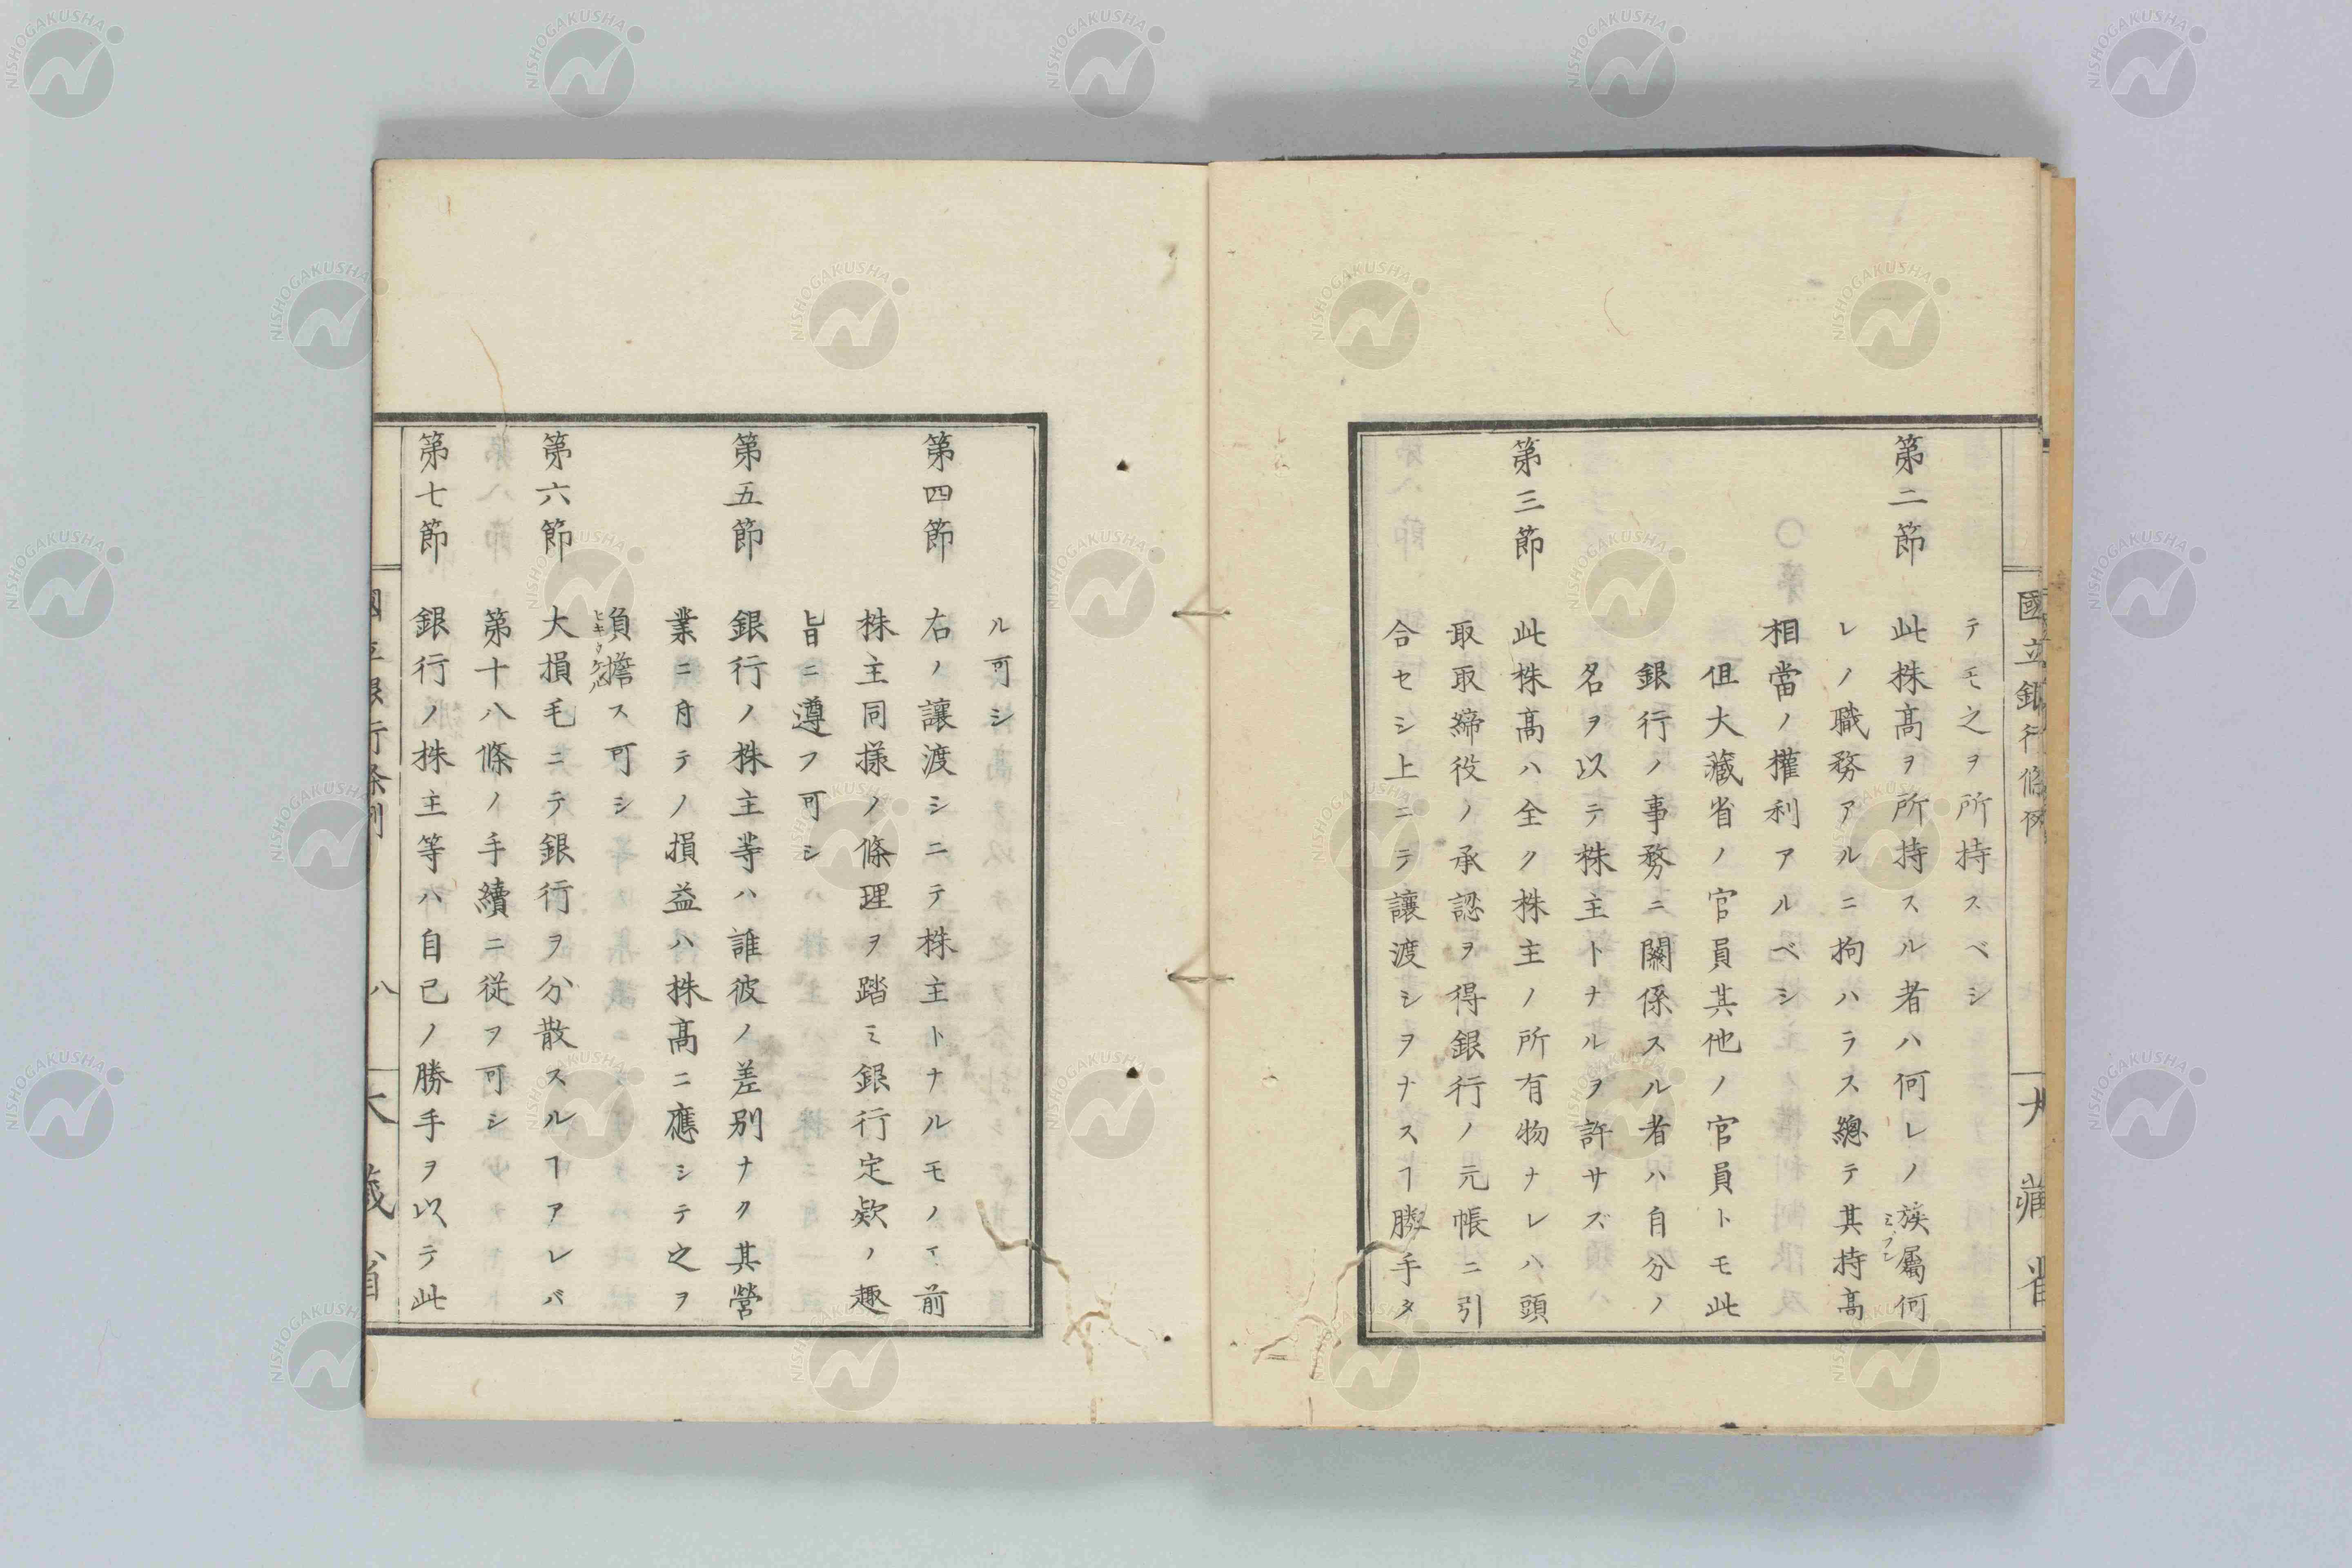 國立銀行條例
大藏省
テモ之ヲ所持スベシ
第二節 此株髙ヲ所持スル者ハ何レノ族屬何
ミブン
レノ職務アルニ拘ハラス總テ其持髙
相當ノ權利アルベシ
伹大藏省ノ官員其他ノ官員トモ此
銀行ノ事務ニ關係スル者ハ自分ノ
名ヲ以テ株主トナルヲ許サズ
第三節 此株髙ハ全ク株主ノ所有物ナレハ頭
取取締役ノ承認ヲ得銀行ノ元帳ニ引
合セシ上ニテ讓渡シヲナスヿ勝手タ
ル可シ
第四節 右ノ讓渡シニテ株主トナルモノハ前
株主同樣ノ條理ヲ踏ミ銀行定欵ノ趣
旨ニ遵フ可シ
第五節 銀行ノ株主等ハ誰彼ノ差別ナク其營
業ニ付テノ損益ハ株髙ニ應シテ之ヲ
負擔ス可シ
ヒキウケ
第六節 大損毛ニテ銀行ヲ分散スルヿアレバ
第十八條ノ手續ニ従フ可シ
第七節 銀行ノ株主等ハ自己ノ勝手ヲ以テ此
國立銀行條例
八
大藏省
NISHOGAKUSHA